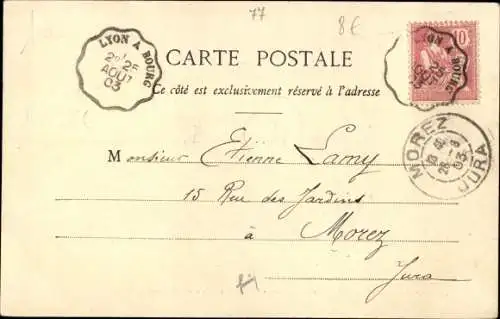 77
8€
LYON A BOURG
AOUT
03
10
LYON A BOURG
CARTE POSTALE
Ce côté est exclusivement réservé à l'adresse
MOREZ
03
JURA
Monsieur Etienne Lamy
15 Rue des Jardins
à Morez
Jura